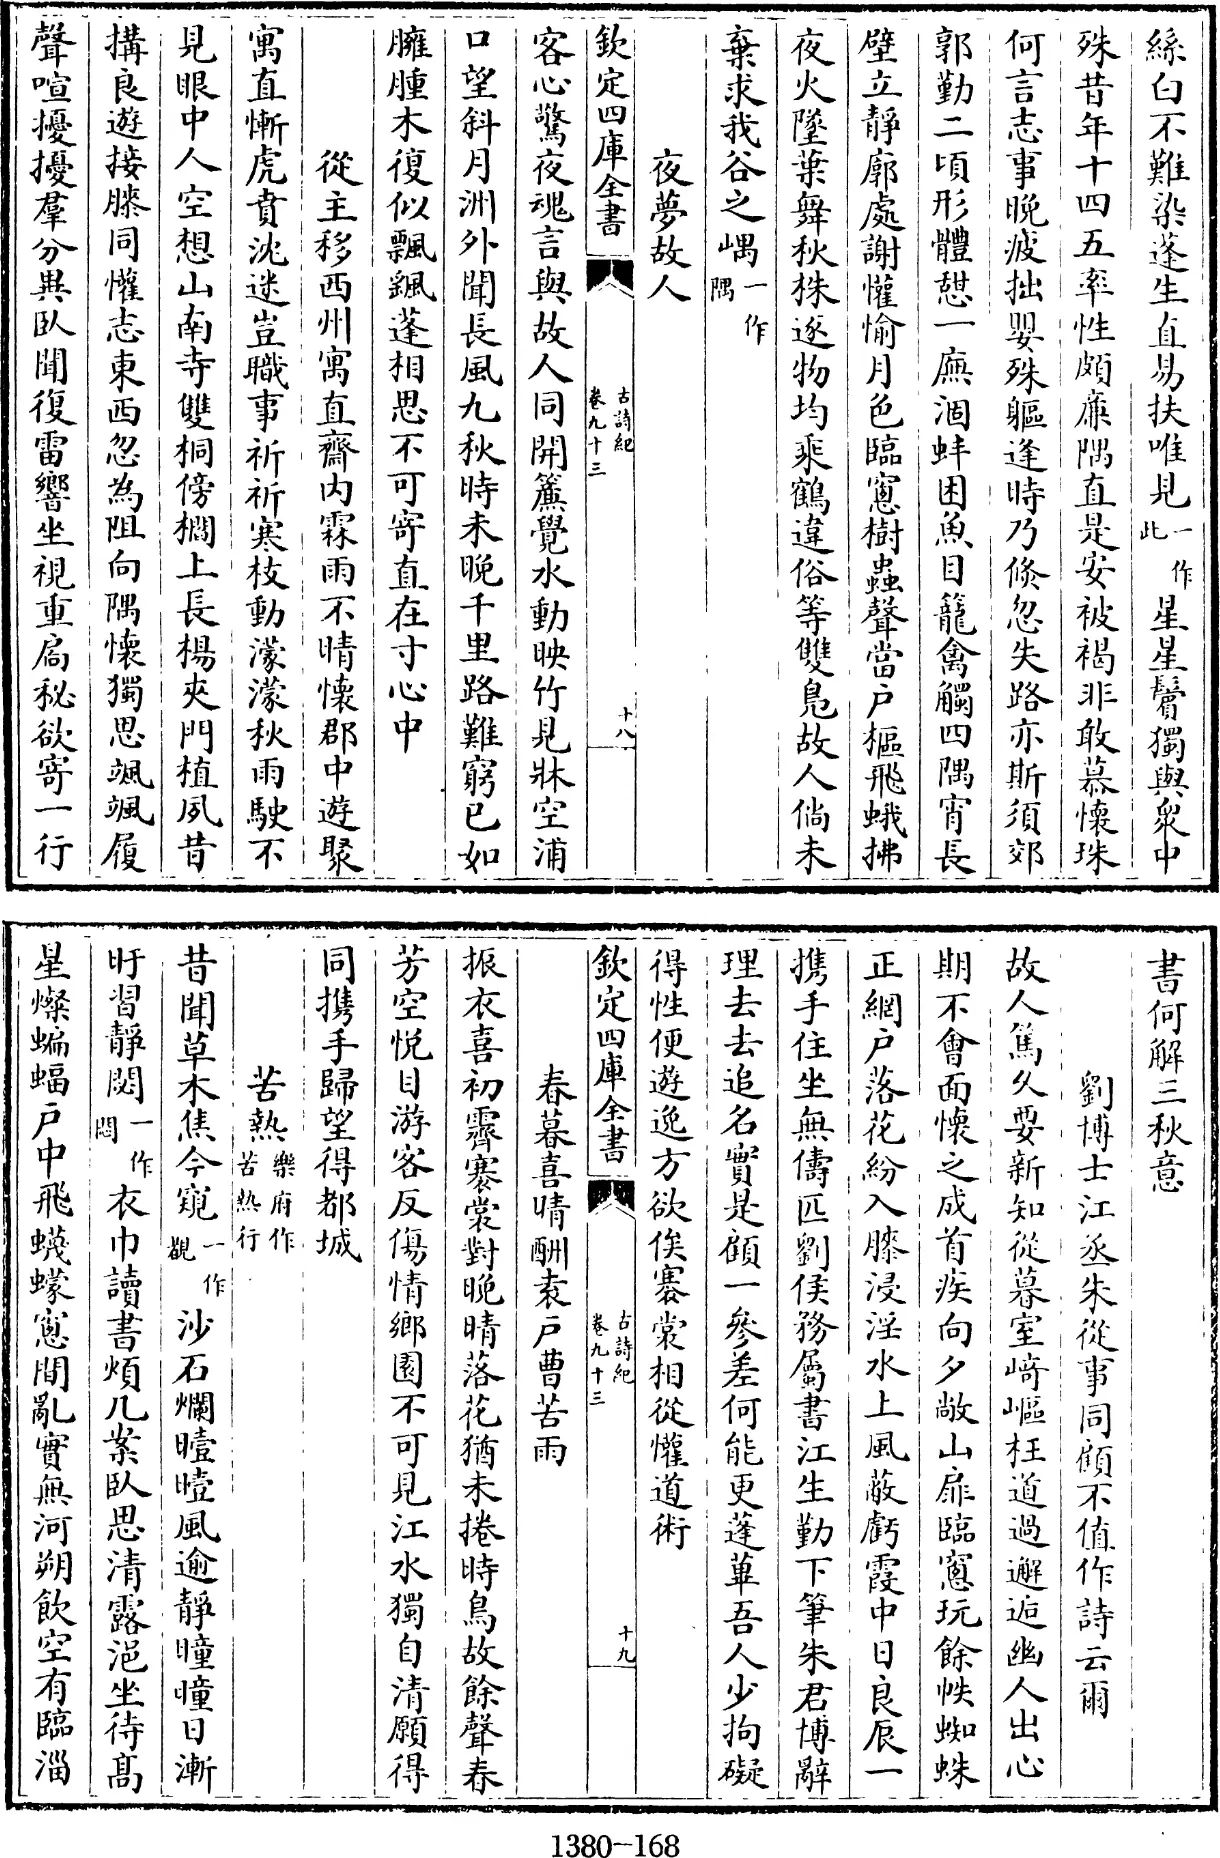 絲白不難染蓬生直易扶唯見一作此星星鬢獨與衆中
殊昔年十四五率性頗廉隅直是安被褐非敢慕懷珠
何言志事晚疲拙嬰殊軀逢時乃倐忽失路亦斯須郊
郭勤二頃形體憇一廡涸蚌困魚目籠禽觸四隅宵長
壁立靜廓處謝懽愉月色臨窻樹蟲聲當户樞飛蛾拂
夜火墜葉舞秋株逐物均乘鶴違俗等雙鳬故人倘未
棄求我谷之嵎一作隅
夜夢故人
欽定四庫全書
古詩紀
卷九十三
十八
客心驚夜魂言與故人同開簾覺水動映竹見牀空浦
口望斜月洲外聞長風九秋時未晚千里路難窮已如
臃腫木復似飄颻蓬相思不可寄直在寸心中
從主移西州寓直齋内霖雨不晴懷郡中遊聚
寓直慚虎賁沈迷豈職事祈祈寒枝動濛濛秋雨駛不
見眼中人空想山南寺雙桐傍櫚上長楊夾門植夙昔
搆良遊接膝同懽志東西忽為阻向隅懷獨思颯颯履
聲喧擾擾羣分異臥聞復霤響坐視重扄秘欲寄一行
書何解三秋意
劉博士江丞朱從事同顧不值作詩云爾
故人篤久要新知從暮室﨑嶇枉道過邂逅幽人出心
期不會面懷之成首疾向夕敞山扉臨窻玩餘帙蜘蛛
正網户落花紛入膝浸淫水上風蔽虧霞中日良辰一
携手住坐無儔匹劉侯務屬書江生勤下筆朱君博辭
理去去追名實是顧一參差何能更蓬蓽吾人少拘礙
得性便遊逸方欲俟褰裳相從懽道術
欽定四庫全書
古詩紀
卷九十三
十九
春暮喜晴酬袁户曹苦雨
振衣喜初霽褰裳對晩晴落花猶未捲時鳥故餘聲春
芳空悦目游客反傷情鄉園不可見江水獨自清願得
同携手歸望得都城
苦熱樂府作苦熱行
昔聞草木焦今窺一作覩沙石爛曀曀風逾靜曈曈日漸
旰習靜閟一作悶衣巾讀書煩几案臥思清露浥坐待髙
星燦蝙蝠戶中飛蠛蠓窻間亂實無河朔飲空有臨淄
1380-168